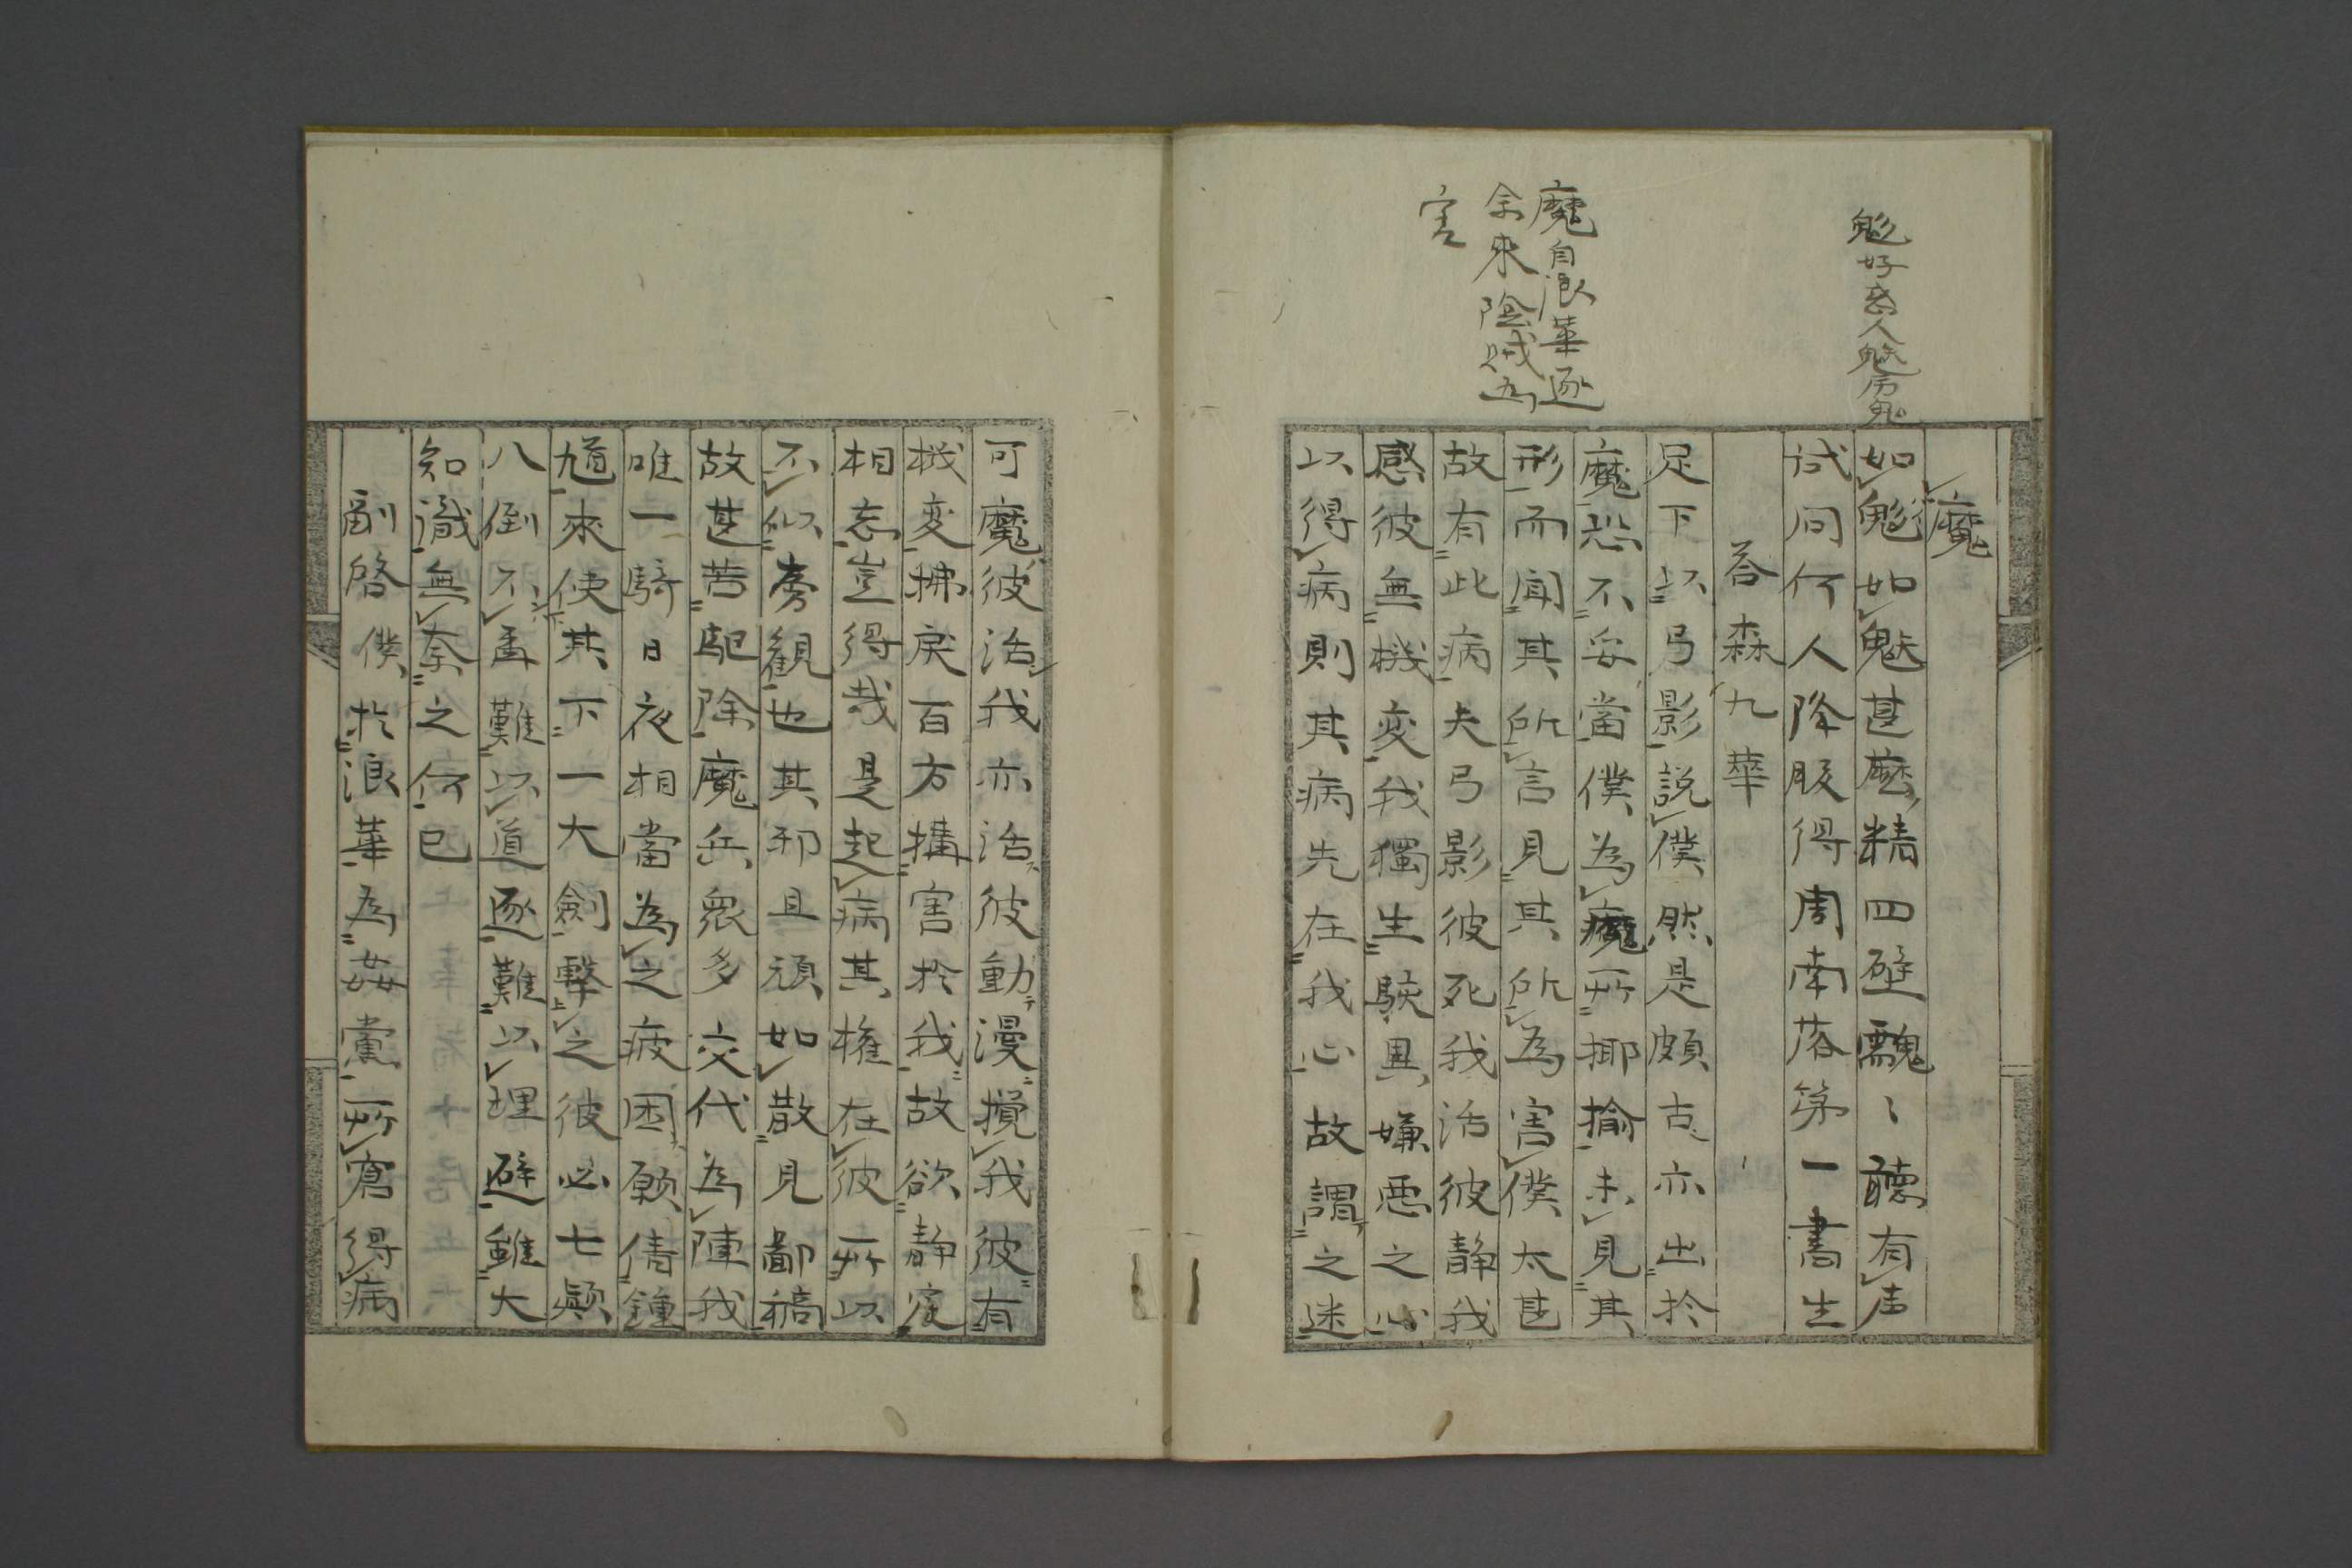 魔自浪華逐
余來陰賊為
害
魔
如魈如魃甚麼精四壁飄〻聽有声
試问何人降服得周南落第一書生
荅森九華
足下以弓影説僕然是頗古亦出於
魔恐不妥當僕為魔所揶揄未見其
形而聞其所言見其所為害僕太甚
故有此病夫弓影彼死我活彼静我
感彼無機変我獨生駭異嫌悪之心
以得病則其病先在我心故謂之迷
可魔彼活我亦活彼動漫攪我彼有
機変拂戾百方搆害於我故欲静定
相忘豈得哉是起病其權在彼所以
不似旁觀也其邪且頑如散見鄙稿
故甚苦駆除魔兵衆多交代為陳我
唯一騎日夜相當為之疲困願倩鍾
馗來使其下一大劍擊之彼必七顛
八倒不面難以道逐難以理避雖大
知識無奈之何已
副啓僕於浪華為姦黨所窘得病